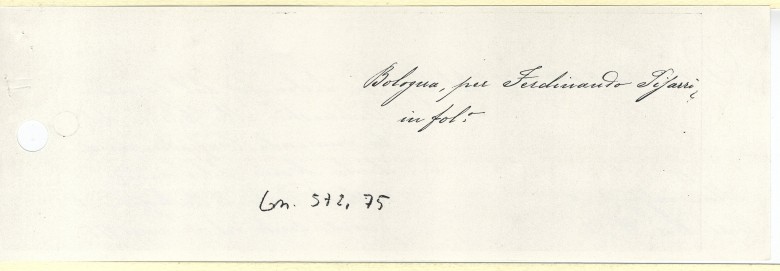 Bologna, per Ferdinando Pisarri,
in fol.º
Gn. 572, 75